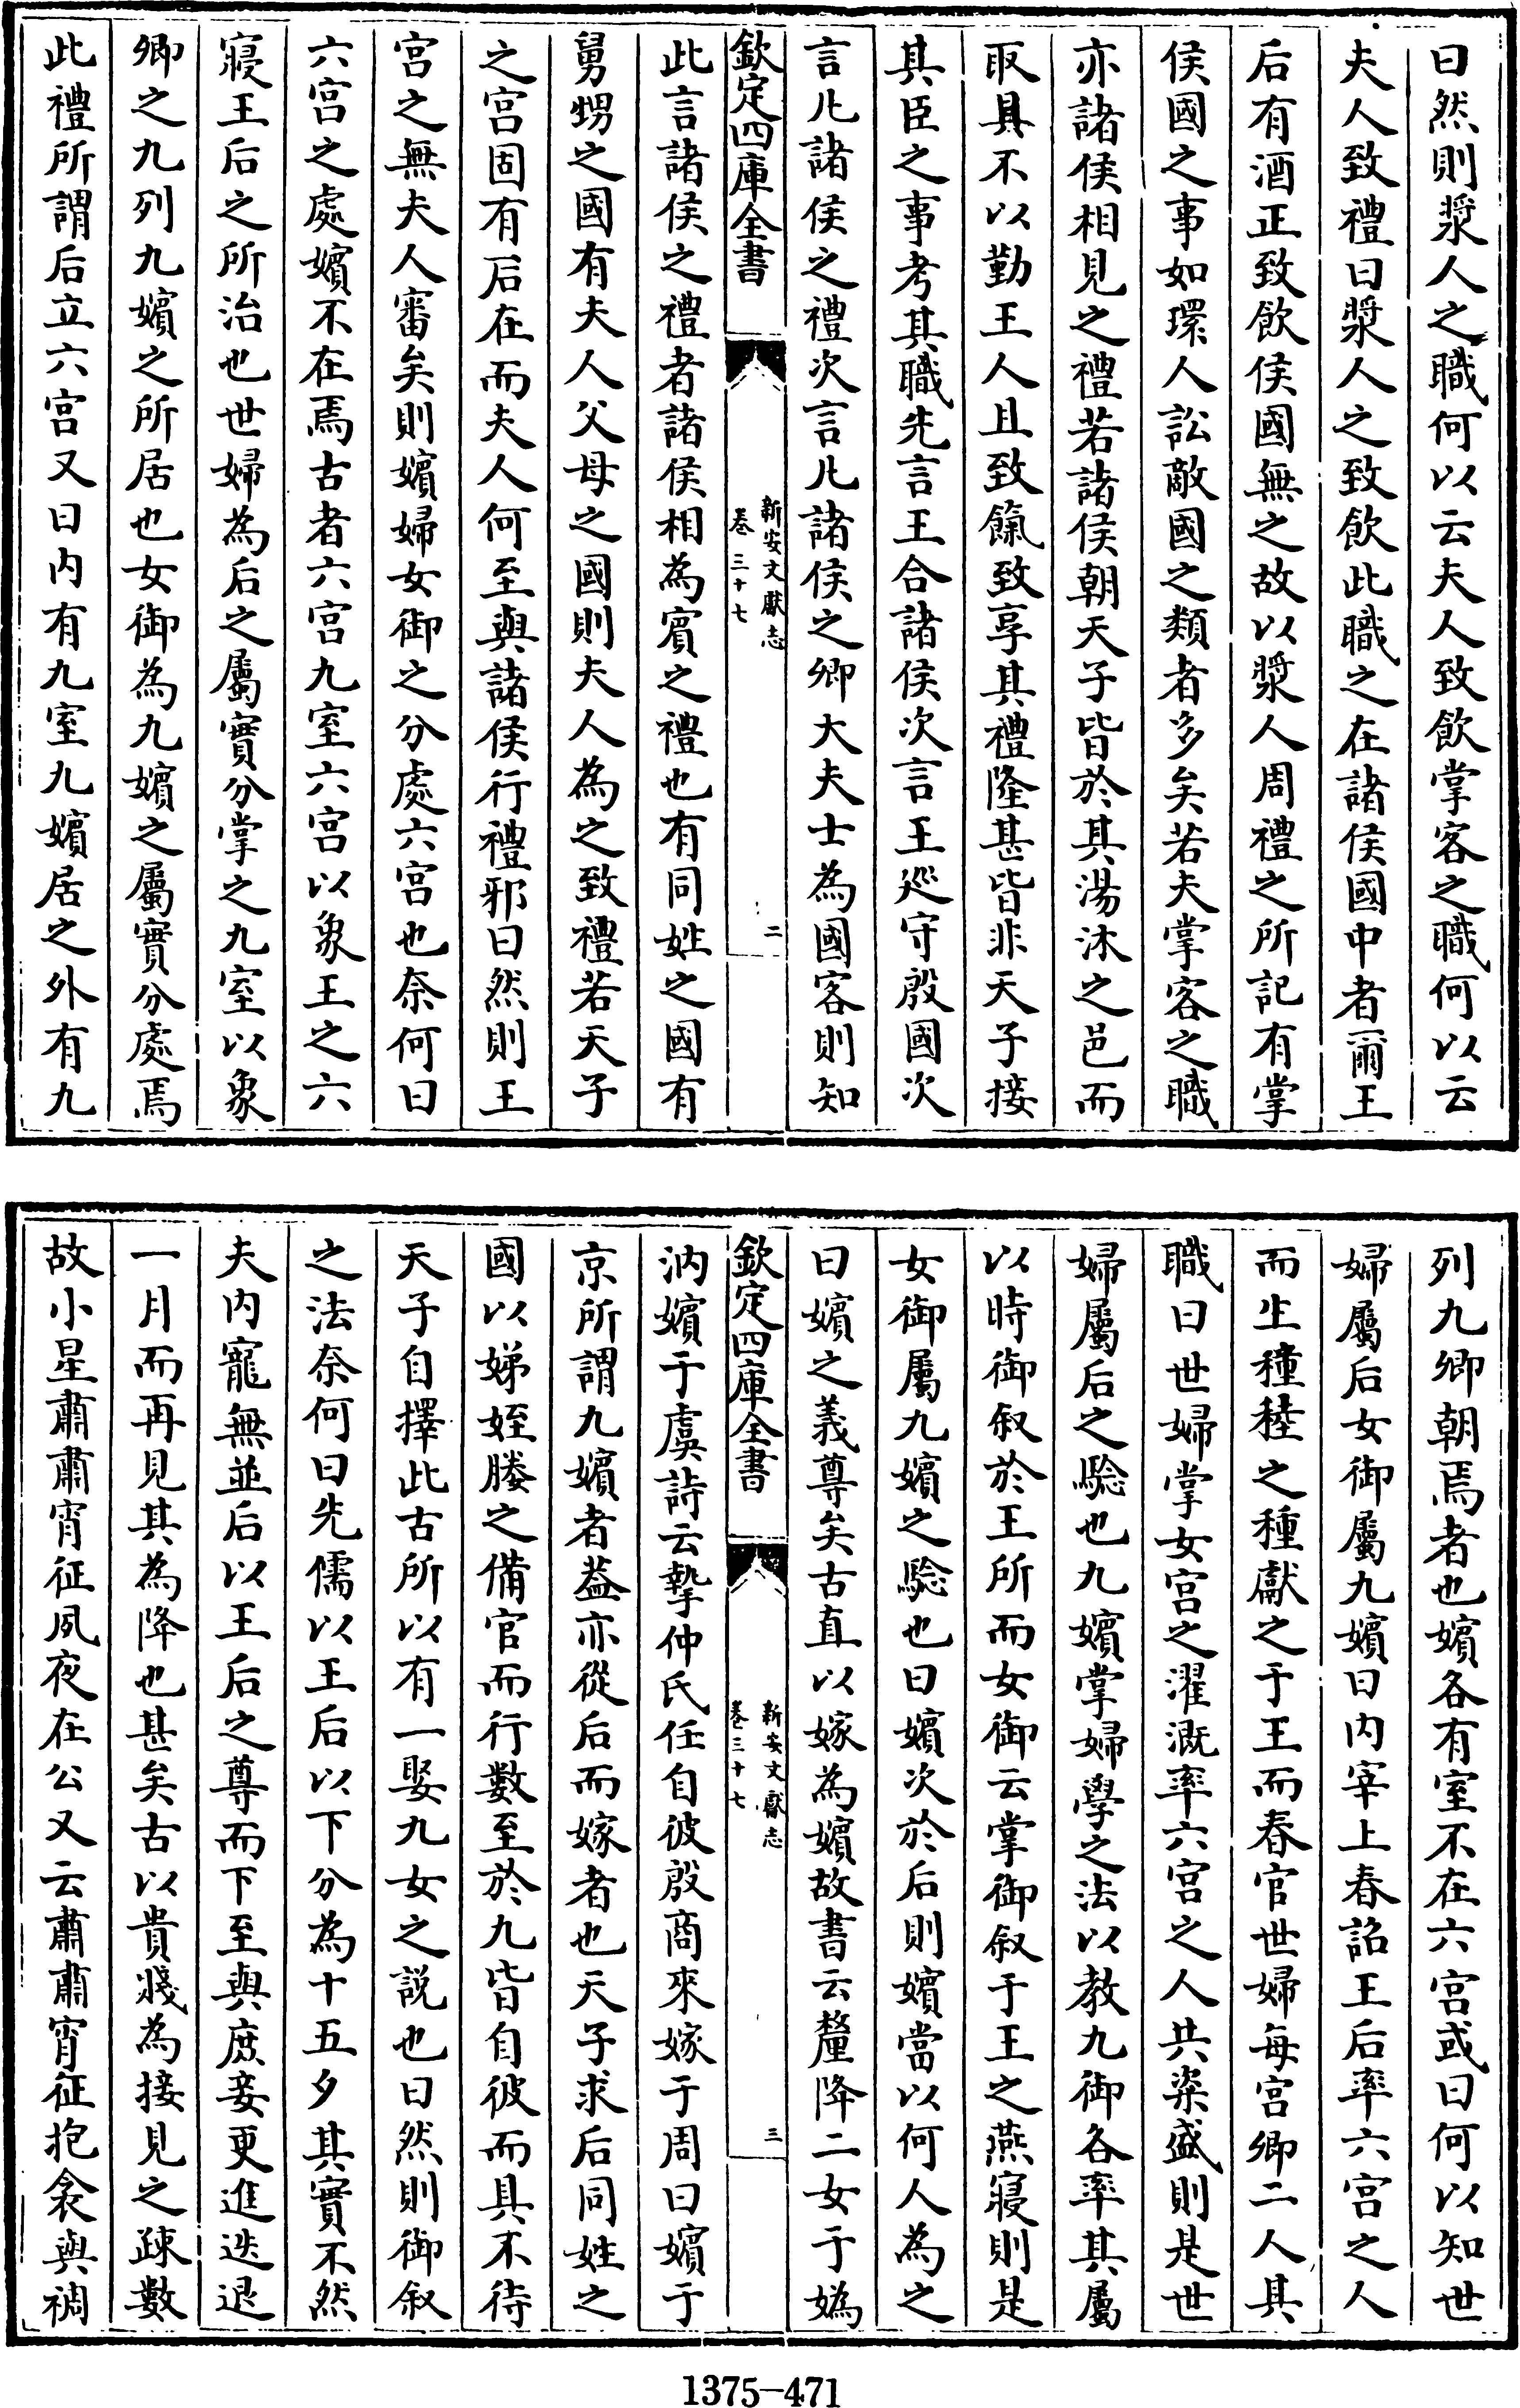 曰然則漿人之職何以云夫人致飲掌客之職何以云
夫人致禮曰漿人之致飲此職之在諸侯國中者爾王
后有酒正致飲侯國無之故以漿人周禮之所記有掌
侯國之事如環人訟敵國之類者多矣若夫掌客之職
亦諸侯相見之禮若諸侯朝天子皆於其湯沐之邑而
取具不以勤王人且致餼致享其禮隆甚皆非天子接
其臣之事考其職先言王合諸侯次言王廵守殷國次
言凡諸侯之禮次言凡諸侯之卿大夫士為國客則知
欽定四庫全書
新安文獻志
卷三十七
二
此言諸侯之禮者諸侯相為賓之禮也有同姓之國有
舅甥之國有夫人父母之國則夫人為之致禮若天子
之宫固有后在而夫人何至與諸侯行禮邪曰然則王
宫之無夫人審矣則嬪婦女御之分處六宫也奈何曰
六宫之處嬪不在焉古者六宫九室六宫以象王之六
寢王后之所治也世婦為后之屬實分掌之九室以象
卿之九列九嬪之所居也女御為九嬪之屬實分處焉
此禮所謂后立六宫又曰内有九室九嬪居之外有九
列九卿朝焉者也嬪各有室不在六宫或曰何以知世
婦屬后女御屬九嬪曰内宰上春詔王后率六宫之人
而生穜稑之種獻之于王而春官世婦每宫卿二人其
職曰世婦掌女宫之濯溉率六宫之人共粢盛則是世
婦屬后之騐也九嬪掌婦學之法以教九御各率其屬
以時御叙於王所而女御云掌御叙于王之燕寢則是
女御屬九嬪之騐也曰嬪次於后則嬪當以何人為之
曰嬪之義尊矣古直以嫁為嬪故書云釐降二女于媯
欽定四庫全書
新安文獻志
卷三十七
三
汭嬪于虞詩云摯仲氏任自彼殷商來嫁于周曰嬪于
京所謂九嬪者葢亦從后而嫁者也天子求后同姓之
國以娣姪媵之備官而行數至於九皆自彼而具不待
天子自擇此古所以有一娶九女之説也曰然則御叙
之法奈何曰先儒以王后以下分為十五夕其實不然
夫内寵無並后以王后之尊而下至與庶妾更進迭退
一月而再見其為降也甚矣古以貴賤為接見之疎數
故小星肅肅宵征夙夜在公又云肅肅宵征抱衾與裯
1375-471